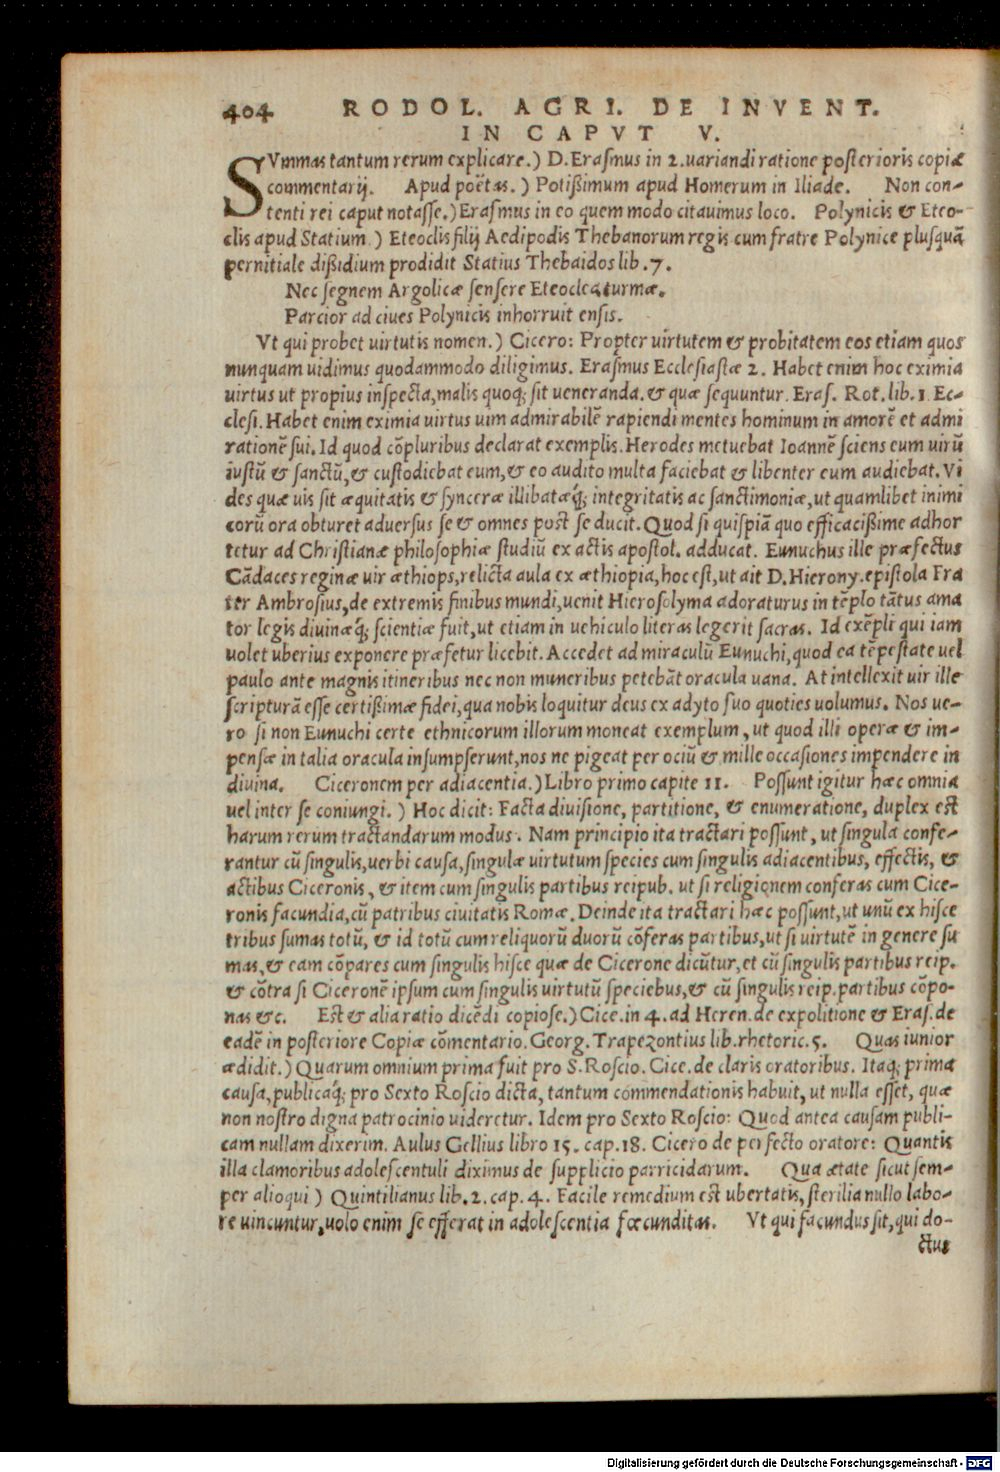 404 RODOL. AGRI. DE INVENT.
IN CAPVT V.
SVmmas tantum rerum explicare.) D. Erasmus in 2. uariandi ratione posterioris copiæ
commentarij. Apud poëtas.) Potißimum apud Homerum in Iliade. Non con-
tenti rei caput notasse.) Erasmus in eo quem modo citauimus loco. Polynicis & Eteo-
clis apud Statium.) Eteoclis filij Aedipodis Thebanorum regis cum fratre Polynice plusquã
pernitiale dißidium prodidit Statius Thebaidos lib. 7.
Nec segnem Argolicæ sensere Eteoclea turmæ.
Parcior ad ciues Polynicis inhorruit ensis.
Vt qui probet uirtutis nomen.) Cicero: Propter uirtutem & probitatem eos etiam quos
nunquam uidimus quodammodo diligimus. Erasmus Ecclesiastæ 2. Habet enim hoc eximia
uirtus ut propius inspecta, malis quoq; sit ueneranda. & quæ sequuntur. Eras. Rot. lib. 1 Ec-
clesi. Habet enim eximia uirtus uim admirabilẽ rapiendi mentes hominum in amorẽ et admi
rationẽ sui. Id quod cõpluribus declarat exemplis. Herodes metuebat Ioannẽ sciens eum uirũ
iustũ & sanctũ, & custodiebat eum, & eo audito multa faciebat & libenter eum audiebat. Vi
des quæ uis sit æquitatis & synceræ illibatæq́; integritatis ac sanctimoniæ, ut quamlibet inimi
corũ ora obturet aduersus se & omnes post se ducit. Quod si quispiã quo efficacißime adhor
tetur ad Christianæ philosophiæ studiũ ex actis apostol. adducat. Eunuchus ille præfectus
Cãdaces reginæ uir æthiops, relicta aula ex æthiopia, hoc est, ut ait D. Hierony. epistola Fra
ter Ambrosius, de extremis finibus mundi, uenit Hierosolyma adoraturus in tẽplo tãtus ama
tor legis diuinæq́; scientiæ fuit, ut etiam in uehiculo literas legerit sacras. Id exẽpli qui iam
uolet uberius exponere præfetur licebit. Accedet ad miraculũ Eunuchi, quod ea tẽpestate uel
paulo ante magnis itineribus nec non muneribus petebãt oracula uana. At intellexit uir ille
scripturã esse certißimæ fidei, qua nobis loquitur deus ex adyto suo quoties uolumus. Nos ue-
ro si non Eunuchi certe ethnicorum illorum moneat exemplum, ut quod illi operæ & im-
pensæ in talia oracula insumpserunt, nos ne pigeat per ociũ & mille occasiones impendere in
diuina. Ciceronem per adiacentia.) Libro primo capite 11. Possunt igitur hæc omnia
uel inter se coniungi.) Hoc dicit: Facta diuisione, partitione, & enumeratione, duplex est
harum rerum tractandarum modus. Nam principio ita tractari possunt, ut singula confe-
rantur cũ singulis, uerbi causa, singulæ uirtutum species cum singulis adiacentibus, effectis, &
actibus Ciceronis, & item cum singulis partibus reipub. ut si religionem conferas cum Cice-
ronis facundia, cũ patribus ciuitatis Romæ. Deinde ita tractari hæc possunt, ut unũ ex hisce
tribus sumas totũ, & id totũ cum reliquorũ duorũ cõferas partibus, ut si uirtutẽ in genere su
mas, & eam cõpares cum singulis hisce quæ de Cicerone dicũtur, et cũ singulis partibus reip.
& cõtra si Ciceronẽ ipsum cum singulis uirtutũ speciebus, & cũ singulis reip. partibus cõpo-
nas &c. Est & alia ratio dicẽdi copiose.) Cice. in 4. ad Heren. de expolitione & Eras. de
eadẽ in posteriore Copiæ cõmentario. Georg. Trapezontius lib. rhetoric. 5. Quas iunior
ædidit.) Quarum omnium prima fuit pro S. Roscio. Cice. de claris oratoribus. Itaq; prima
causa, publicaq́; pro Sexto Roscio dicta, tantum commendationis habuit, ut nulla esset, quæ
non nostro digna patrocinio uideretur. Idem pro Sexto Roscio: Quod antea causam publi-
cam nullam dixerim. Aulus Gellius libro 15. cap. 18. Cicero de perfecto oratore: Quantis
illa clamoribus adolescentuli diximus de supplicio parricidarum. Qua ætate sicut sem-
per alioqui) Quintilianus lib. 2. cap. 4. Facile remedium est ubertatis, sterilia nullo labo-
re uincuntur, uolo enim se efferat in adolescentia fœcunditas. Vt qui facundus sit, qui do-
ctus
Digitalisierung gefördert durch die Deutsche Forschungsgemeinschaft - DFG